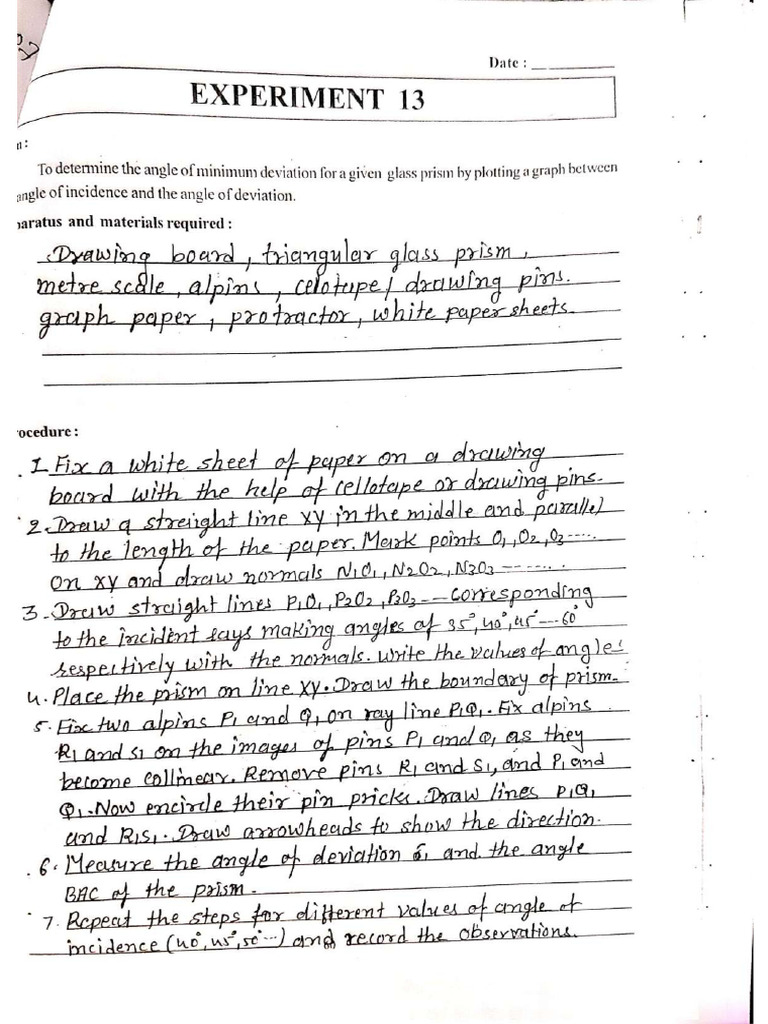 Date :
EXPERIMENT 13
n :
To determine the angle of minimum deviation for a given glass prism by plotting a graph between
angle of incidence and the angle of deviation.
paratus and materials required :
Drawing board, triangular glass prism,
metre scale, alpins, celotape/drawing pins.
graph paper, protractor, white paper sheets.
ocedure :
1. Fix a white sheet of paper on a drawing
board with the help of cellotape or drawing pins.
2. Draw a streight line XY in the middle and parallel
to the length of the paper. Mark points O1, O2, O3.....
On XY and draw normals N1O1, N2O2, N3O3.......
3. Draw straight lines P1O1, P2O2, P3O3 --- Corresponding
to the incident rays making angles of 35°, 40°, 45° --- 60°
respectively with the normals. Write the values of angles
4. Place the prism on line XY. Draw the boundary of prism.
5. Fix two alpins P1 and Q1 on ray line P1Q1. Fix alpins
R1 and S1 on the images of pins P1 and Q1 as they
become collinear. Remove pins R1 and S1, and P1 and
Q1. Now encircle their pin pricks. Draw lines P1Q1
and R1S1. Draw arrowheads to show the direction.
6. Measure the angle of deviation δ1 and the angle
BAC of the prism.
7. Repeat the steps for different values of angle of
incidence (40°, 45°, 50° ...) and record the observations.